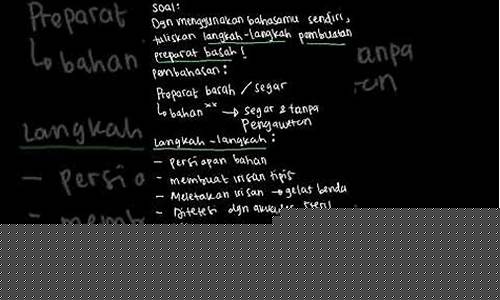 Soal:
Dgn menggunakan bahasamu sendiri,
tuliskan langkah-langkah pembuatan
preparat basah!
pembahasan:
Preparat basah / segar
↳ bahan** → segar & tanpa
Pengawetan
Langkah-langkah:
- persiapan bahan
- membuat irisan tipis
- Meletakan irisan → gelas benda
- Ditetesi dgn
Preparat
↳ bahan
Langkah
- persia
- memb
anpa